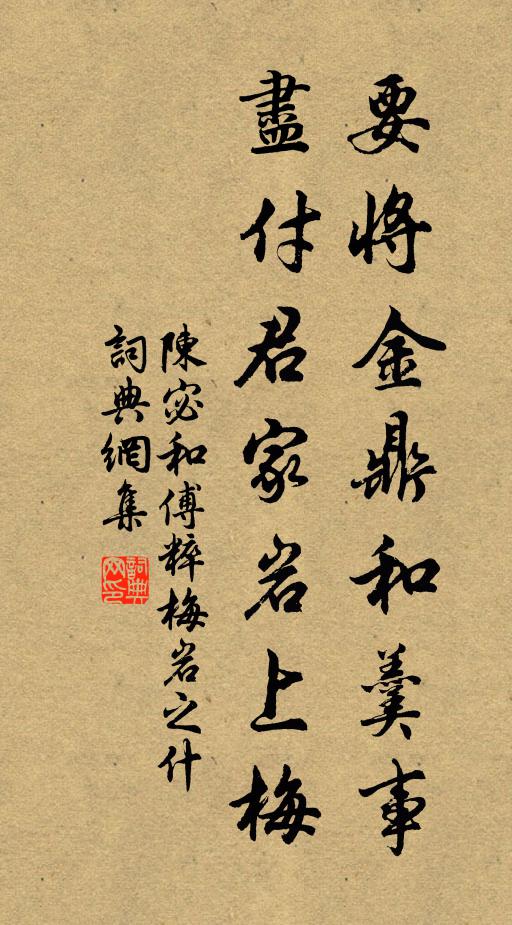 要將金鼎和羹事
盡付君家岩上梅
陳宓和傅粹梅岩之什
詞典網集
詞典網印